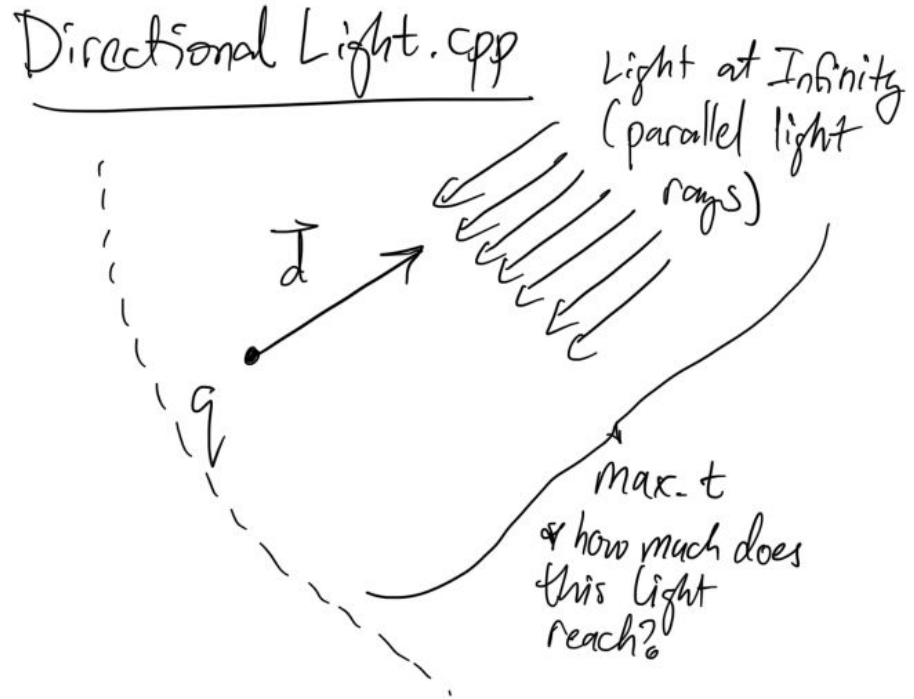 Directional Light.cpp
Light at Infinity
(parallel light
rays)
d
q
max_t
* how much does
this light
reach?